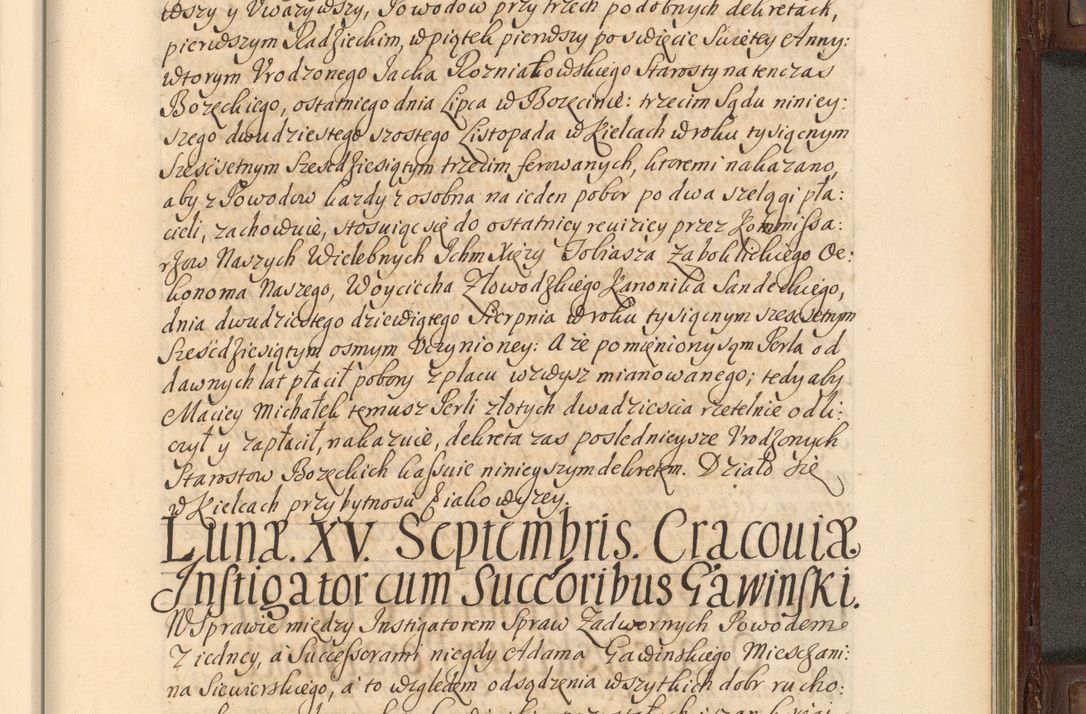 tészy y Uważywszy, Powodow przy trzech podobnych dekretach,
pierwszym Radzieckim, w piątek pierwszy po święcie Swiętey Anny:
wtorym Urodzonego Jacka Rozniakowskiego Starosty na tenczas
Bozęckiego, ostatniego dnia Lipca w Bozęcinie: trzecim Sądu niniey:
szego dwudziestego szostego Listopada w Kielcach w roku tysiącnym
Szesćsetnym Szesćdziesiątym trzecim ferowanych, ktoremi nakazano,
aby z Powodow kazdy z osobna na ieden pobor po dwa szelągi pła:
cieli, zachowuie, stosuiąc się do ostatniey rewiziey przez Kommissa:
rzow Naszych Wielebnych Jchm Xięzy Tobiasza Zaboklickiego Oe:
konoma Naszego, Woyciecha Złowodzkiego Kanonika Sandeckiego,
dnia dwudziestego dziewiątego Sierpnia w roku tysiącnym szescsetnym
Szesćdziesiątym osmym Uczynioney: A ze pomieniony sąm Perla od
dawnych lat płacił pobory z placu wzwysz mianowanego; tedy aby
Maciey Michałek temusz Perli złotych dwadziescia rzetelnie odli:
czył y zapłacił, nakazuie, dekreta zas poslednieysze Urodzonych
Starostow Bozęckich kassuie ninieyszym dekretem. Działo się
w Kielcach przy bytnosci iako wyzey.
Lunæ. XV. Septembris. Cracouiæ.
Instigator cum Succoribus Gawinski.
W Sprawie między Instigatorem Spraw Zadwornych Powodem
Z iedney, a Successorami niegdy Adama Gawinskiego Mieszczani:
na Siewierskiego, a to względem odsądzenia wszytkich dobr rucho: